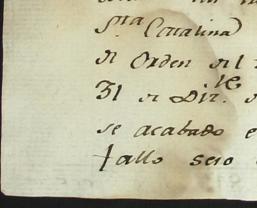 Sta Catalina
de Orden del
31 de Dizre. d
se acabado e
fallo seso